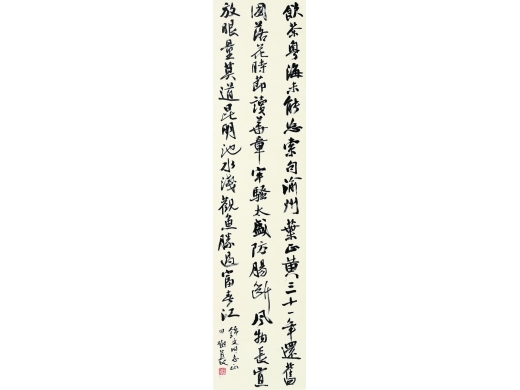 飲茶粵海未能忘索句渝州葉正黃三十一年還舊
國落花時節讀華章牢騷太盛防腸斷風物長宜
放眼量莫道昆明池水淺觀魚勝過富春江
同志正